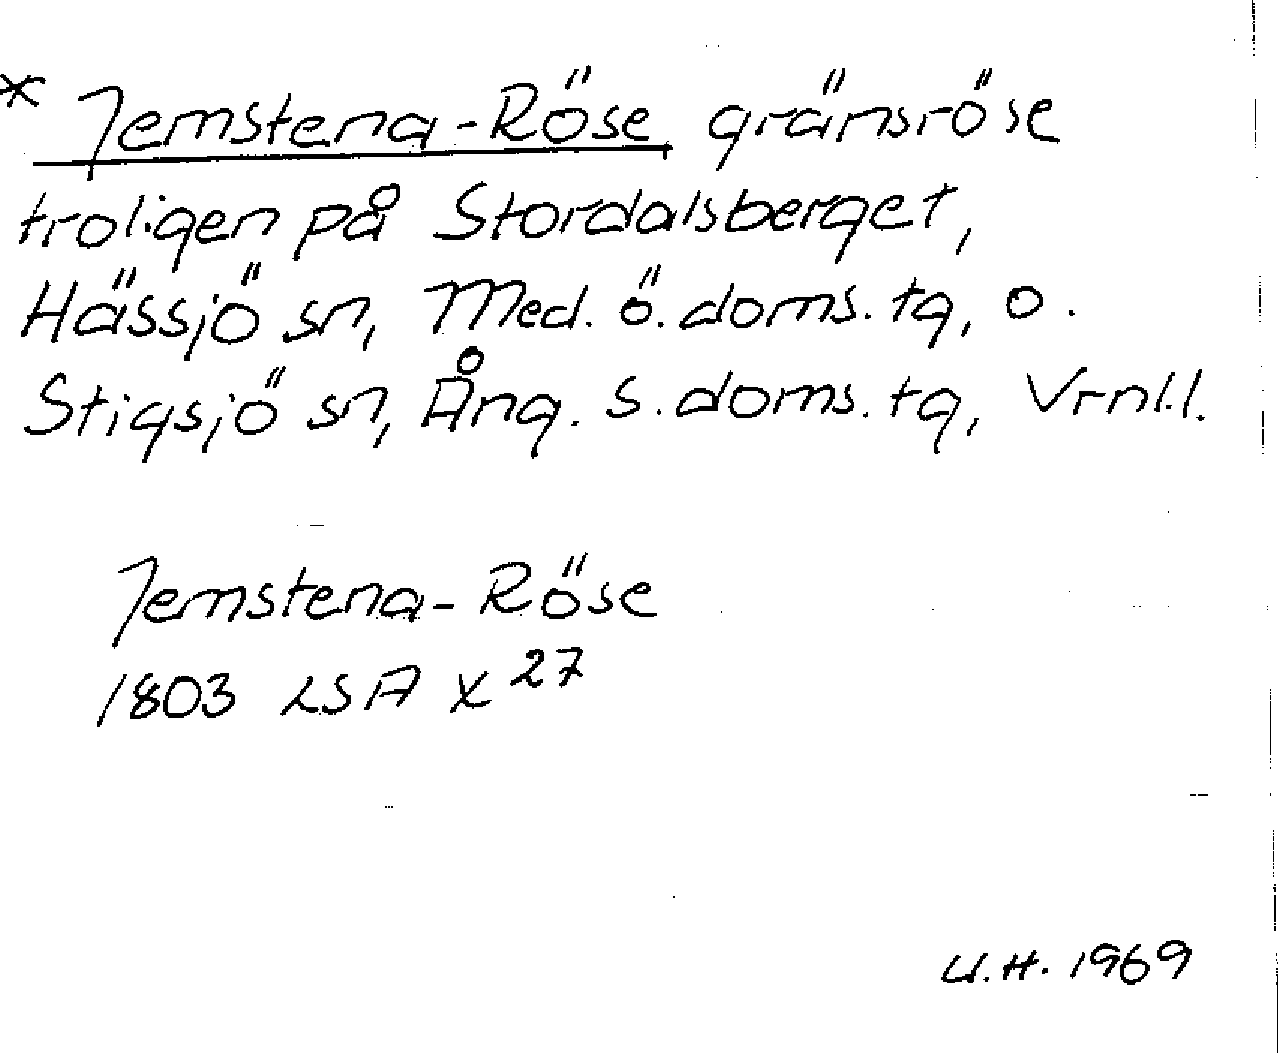 * Jemstena-Röse, gränsröse
troligen på Stordalsberget,
Hässjö sn, Med. ö. doms. tg, o.
Stigsjö sn, Ång. s. doms. tg, Vrnl.l.
Jemstena-Röse
1803 LSA X 27
U.H. 1969